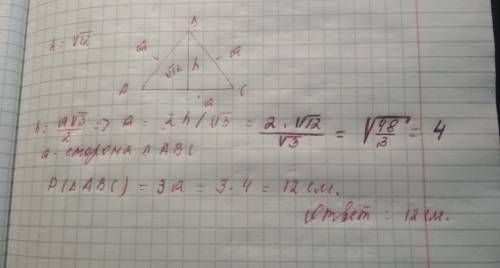 h = √12
B
a
a
√12 h
A C
a
h = a√3/2 => a = 2h/√3 = 2 · √12/√3 = √48/3 = 4
a - сторона ΔABC
P(ΔABC) = 3a = 3 · 4 = 12 см.
Ответ : 12 см.